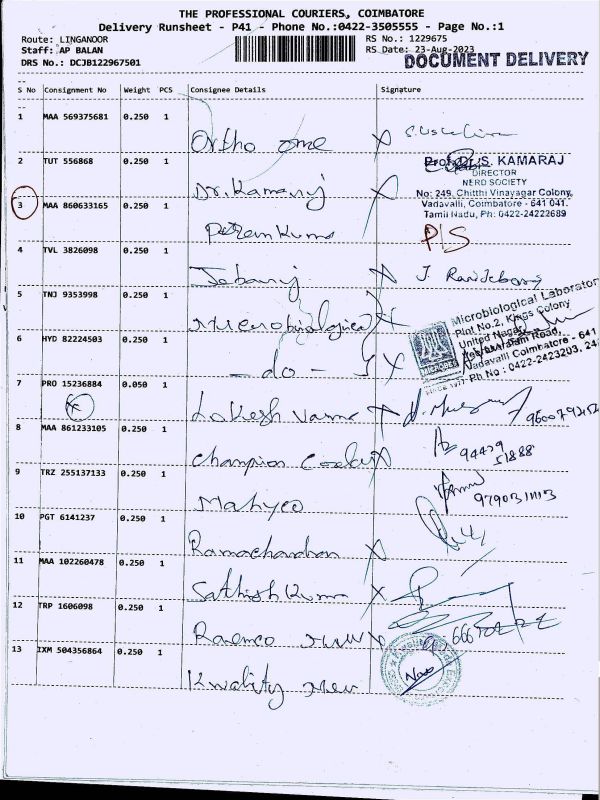 THE PROFESSIONAL COURIERS, COIMBATORE
Delivery Runsheet - P41 - Phone No.:0422-3505555 - Page No.:1
Route: LINGANOOR
RS No.: 1229675
Staff: AP BALAN
RS Date: 23-Aug-2023
DRS No.: DCJB122967501
DOCUMENT DELIVERY
S No Consignment No Weight PCS Consignee Details Signature
1 MAA 569375681 0.250 1
Ortho one X
2 TUT 556868 0.250 1
Prof. Dr. S. KAMARAJ
DIRECTOR
NERD SOCIETY
No: 249, Chitthi Vinayagar Colony,
Vadavalli, Coimbatore - 641 041.
Tamil Nadu, Ph: 0422-24222689
Dr. Kamaraj X
3 MAA 860633165 0.250 1
PLS
4 TVL 3826098 0.250 1
Jebaraj X J.
5 TNJ 9353998 0.250 1
Microbiological X
Microbiological Laborator
Plot No.2, Kings Colony
United Nagar,
Vadavalli Coimbatore - 641
Ph No : 0422-2423203, 24
6 HYD 82224503 0.250 1
- do - X
7 PRO 15236884 0.050 1
Lokesh Varma X
8 MAA 861233105 0.250 1
Champion X
94429
51888
9 TRZ 255137133 0.250 1
Mahyco
9790311113
10 PGT 6141237 0.250 1
Ramachandran X
11 MAA 102260478 0.250 1
Sathish Kuma X
12 TRP 1606098 0.250 1
13 IXM 504356864 0.250 1
Kwality